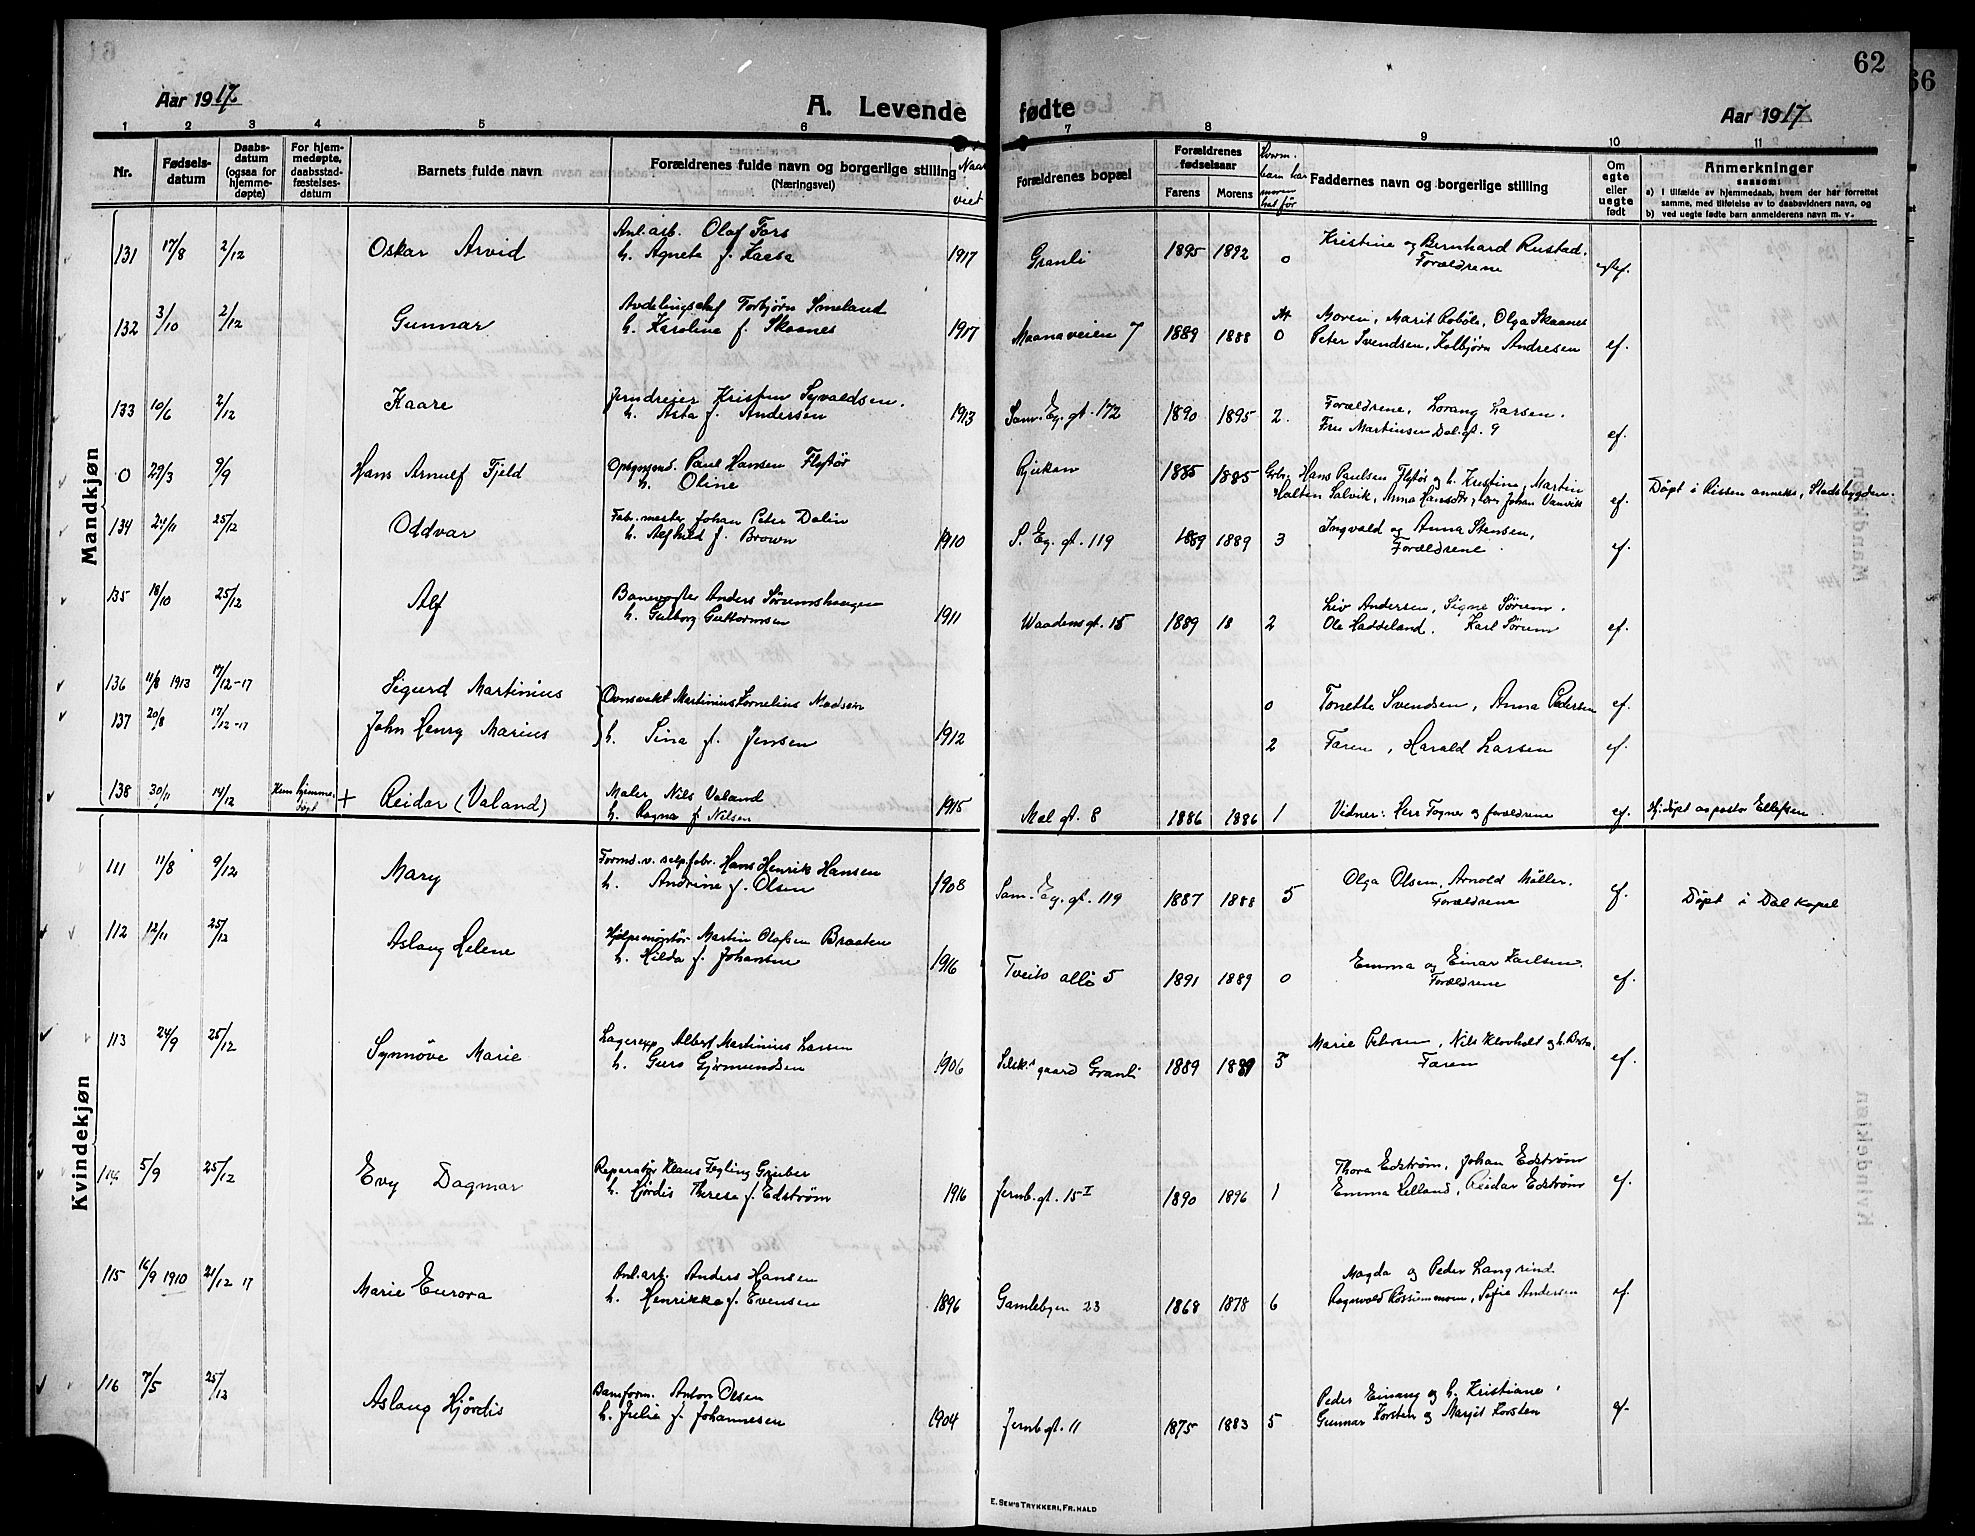 62
66
Aar 1917
A. Levende fødte
Aar 1917
1 2 3 4 5 6 7 8 9 10 11
Nr.
Fødsels-
datum
Daabs-
datum
(ogsaa for
hjemme-
døpte)
For hjem-
medøpte,
daabsstad-
fæstelses-
datum
Barnets fulde navn
Forældrenes fulde navn og borgerlige stilling
(Næringsvei)
Naar
viet
Forældrenes bopæl
Forældrenes
fødselsaar
Farens Morens
Hvorm.
barn har
moren
hat før
Faddernes navn og borgerlige stilling
Om
egte
eller
uegte
født
Anmerkninger
saasom:
a) I tilfælde av hjemmedaab, hvem der har forrettet
samme, med tilføielse av to daabsvidners navn, og
b) ved uegte fødte barn anmelderens navn m. v.
Mandkjøn
131 17/8 2/12 Oskar Arvid Anl.arb. Olaf Fors 1917 Granli 1895 1892 0 Kristine og Bernhard Rustad. egtef.
h. Agneta f. Kaasa Forældrene
132 3/10 2/12 Gunnar Avdelingschef Torbjørn Smeland 1917 Maanaveien 7 1889 1888 0 Moren, Marit Robøle, Olga Skaanes ef.
h. Karoline f. Skaanes Peter Svendsen, Kolbjørn Andresen
133 10/6 2/12 Kaare Jerndreier Kristen Syvaldsen. 1913 Sam. Eg. gt. 172 1890 1895 2. Forældrene, Lorang Larsen. ef.
h. Asta f. Andersen Fru Martinsen Dal.gt. 9
0 29/3 9/9 Hans Arnulf Fjeld Opsynsmd. Paul Hansen Fløttør Rjukan 1885 1885 Hans Paulsen Fløttør og h. Kristine, Martin ef. Døpt i Rissen anneks, Stadsbygden.
h. Oline Holten Salvik, Anna Hansdtr, Johan Vanvik
134 24/11 25/12 Oddvar Fabr. mester Johan Peter Dalin 1910 S. Eg. gt. 119 1889 1889 3 Ingvald og Anna Stensen, ef.
h. Alfhild f. Brown Forældrene.
135 18/10 25/12 Alf Banevogter Anders Sørumshaugen 1911 Waadens gt. 15 1889 18 2 Liv Andersen, Signe Sørum. ef.
h. Gulborg Guttormsen Ole Haddeland. Karl Sørum
136 11/8 1913 17/12-17 Sigurd Martinius Ovnsvakt Martinius Kornelius Madsen 0 Tonette Svendsen, Anna Pedersen ef.
137 20/8 17/12-17 John Henry Marius h. Sina f. Jensen 1912 2 Faren, Harald Larsen ef.
138 30/11 14/12 Kun hjemme-
døpt + Reidar (Valand) Maler Nils Valand 1915 Mæl gt. 8 1886 1886 1 Vidner: Herr Fogner og forældrene ef. Hj. døpt av pastor Ellefsen
h. Ragna f. Nilsen
Kvindekjøn
111 11/8 9/12 Mary Formd. v. salp.fabr. Hans Henrik Hansen 1908 Sam. Eg. gt. 119 1887 1888 5 Olga Olsen, Arnold Møller. ef. Døpt i Dal kapel
h. Andrine f. Olsen Forældrene
112 12/11 25/12 Aslaug Helene Hjelpemontør Martin Olafsen Braaten 1916 Tveito allé 5 1891 1889 0 Emma og Einar Karlsen. ef.
h. Hilda f. Johansen Forældrene
113 24/9 25/12 Synnøve Marie Lagerexp. Albert Martinius Larsen 1906 Selsk. gaard Granli 1889 1889 3 Marie Petersen, Nils Klovholt og h. ef.
h. Guro Gjermundsen Faren
114 5/9 25/12 Evy Dagmar Reparatør Klaus Fegling Gruber 1916 Jernb. gt. 15 I 1890 1896 1 Thora Edstrøm, Johan Edstrøm ef.
h. Hjørdis Therese f. Edstrøm Emma Lelland, Reidar Edstrøm
115 16/9 1910 21/12 17 Marie Eurora Anl.arb. Anders Hansen 1896 Gamlebyen 23 1868 1878 6 Magda og Peder Langrind. ef.
h. Henrikke f. Evensen Ragnvald Rossemoen, Sofie Andersen
116 7/5 25/12 Aslaug Hjørdis Basform. Anton Olsen 1904 Jernb. gt. 11 1875 1883 5 Peder Einang og h. Kristiane, ef.
h. Julie f. Johannesen Gunnar Korsten og Margit Korsten
E. SEM'S TRYKKERI, FR.HALD